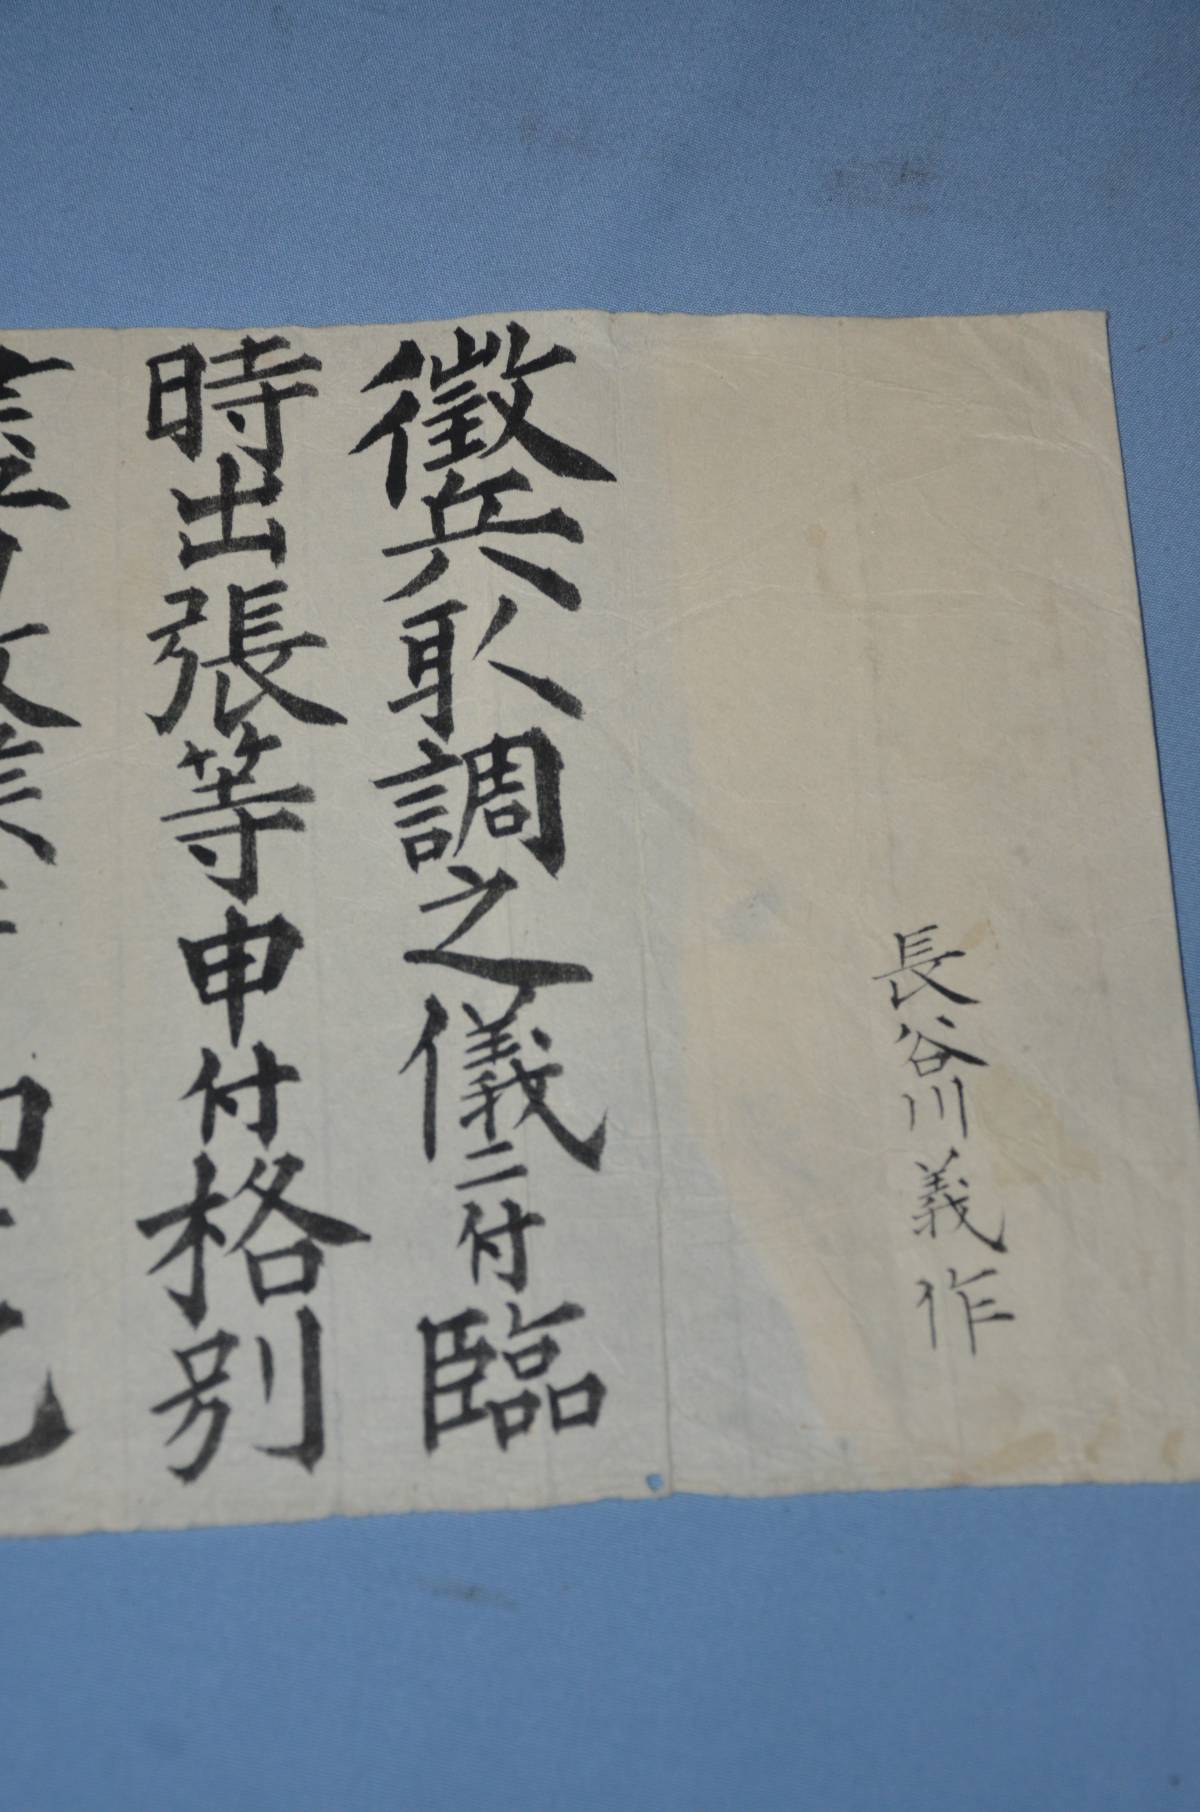 長谷川義作
徴兵取調之儀ニ付臨
時出張等申付格別